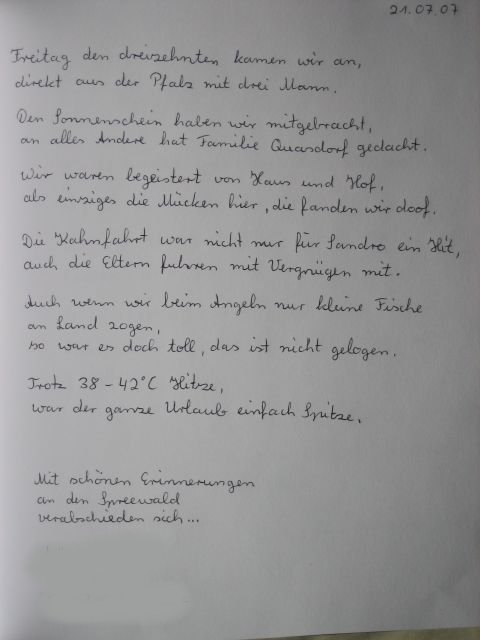 21.07.07
Freitag den dreizehnten kamen wir an,
direkt aus der Pfalz mit drei Mann.
Den Sonnenschein haben wir mitgebracht,
an alles Andere hat Familie Quasdorf gedacht.
Wir waren begeistert von Haus und Hof,
als einziges die Mücken hier, die fanden wir doof.
Die Kahnfahrt war nicht nur für Sandro ein Hit,
auch die Eltern fuhren mit Vergnügen mit.
Auch wenn wir beim Angeln nur kleine Fische
an Land zogen,
so war es doch toll, das ist nicht gelogen.
Trotz 38-42°C Hitze,
war der ganze Urlaub einfach Spitze.
Mit schönen Erinnerungen
an den Spreewald
verabschieden sich...